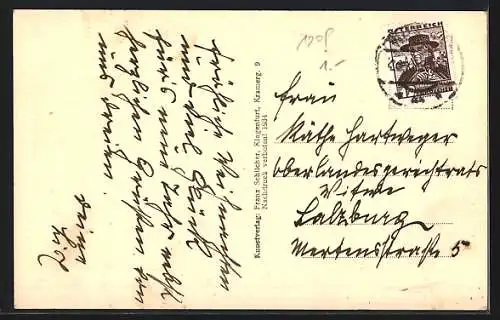 Fröhliche Weihnachten
und viel Glück
fürs neue Jahr nebst
herzlichen Grüßen von
uns beiden.
Kunstverlag: Franz Schlicher, Klagenfurt, Kramerg. 9
Nachdruck verboten! 1934
1.-
ÖSTERREICH
Frau
Käthe Hartweger
Oberlandesgerichtsrats
Witwe
Salzburg
Mertensstraße 5